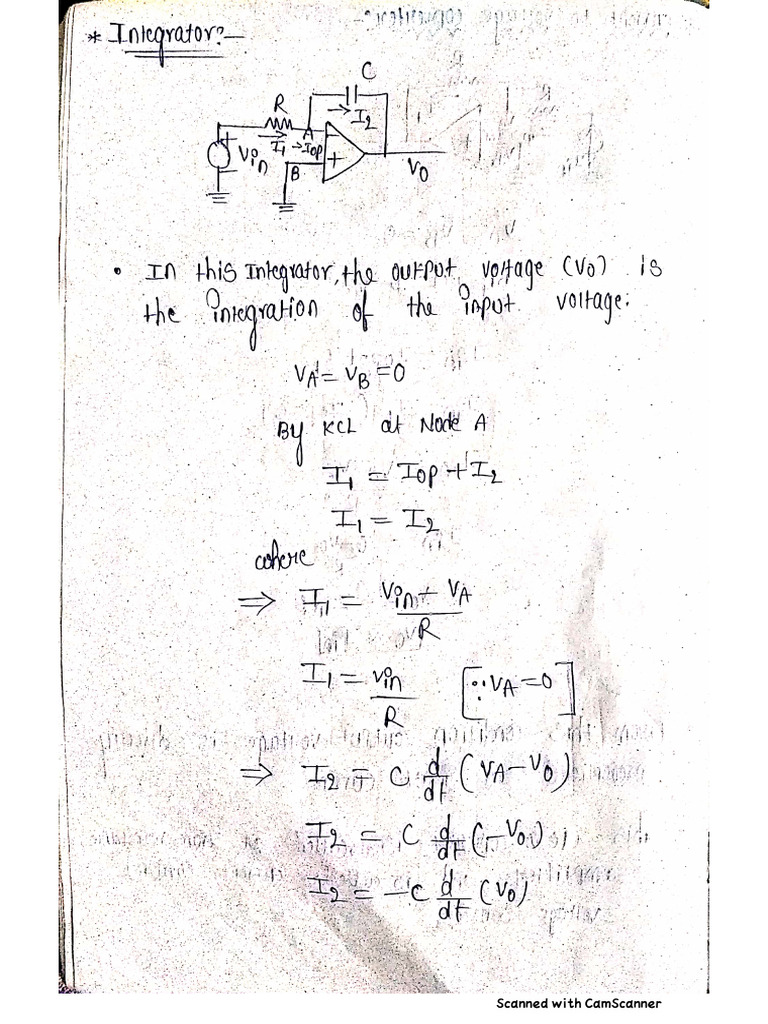 * Integrator:-
C
R
I2
A
I1
Iop
Vin
B
+
-
+
-
Vo
• In this Integrator, the output voltage (Vo) is
the integration of the input voltage.
VA = VB = 0
By KCL at Node A
I1 = Iop + I2
I1 = I2
where
⇒ I1 = Vin + VA / R
I1 = Vin / R [∵ VA = 0]
⇒ I2 = C d/dt (VA - Vo)
I2 = C d/dt (-Vo)
I2 = -C d/dt (Vo)
Scanned with CamScanner